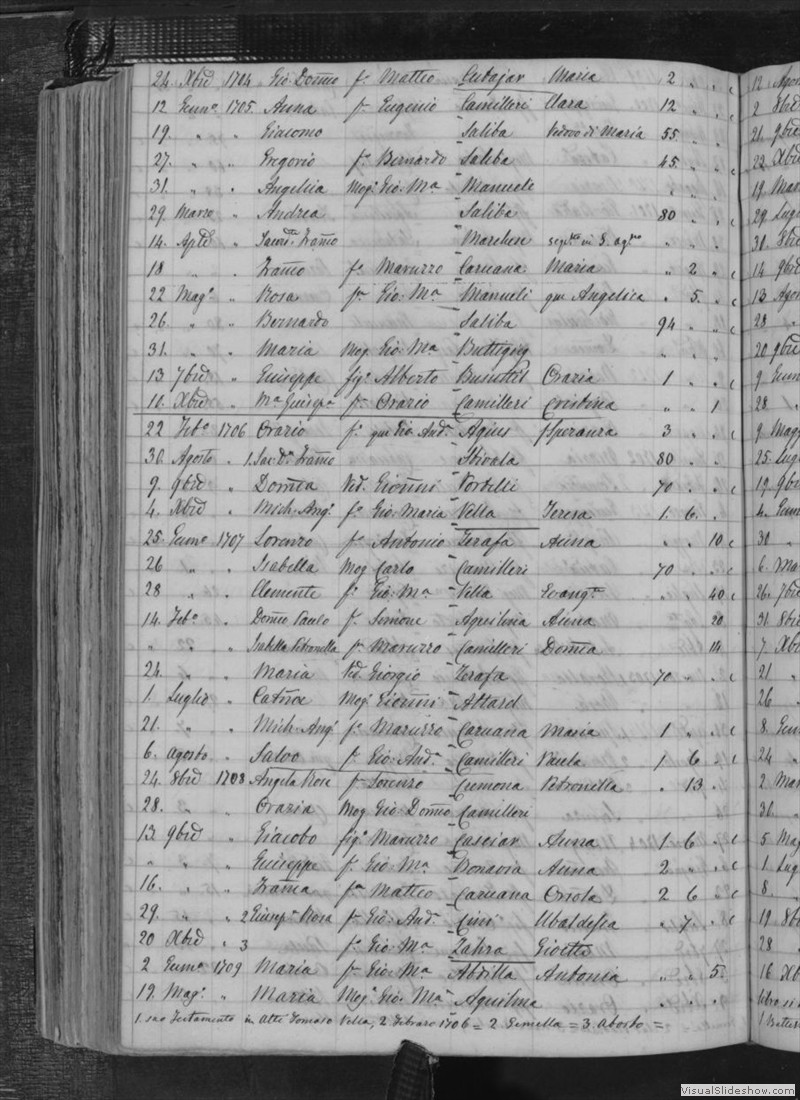 24 Xbre 1704 Gio: Dom̃co f. Matteo Cutajar Maria 2 " " c
12 Genn.o 1705 Anna f. Eugenio Camilleri Clara 12 " " c
19. " " Giacomo Saliba Vedovo di Maria 55. " " c
27. " " Gregorio f. Bernardo Saliba 45. " " c
31. " " Angelica Mog. Gio: Ma Manueli " " "
29 Marzo " Andrea Saliba 80 " " c
14. Aple " Franco Marchese in S. " " "
18 " " Franco f. Maruzzo Caruana Maria " 2 " c
22 Mag.o " Rosa f. Gio: Ma Manueli qm Angelica " 5. " c
26. " " Bernardo Saliba 94 " " c
31. " " Maria Mog. Gio: Ma Buttigieg " " "
13 7bre " Giuseppe fig. Alberto Busuttil Grazia 1 " " c
11. Xbre " Ma Giusepa f. Orazio Camilleri Cristina " " 1
22 Feb.o 1706 Orazio f. qm Gio: And. Agius Speranza 3 " " c
30. Agosto " 1. Franco 80 " " c
9. 9bre " Domca Ved. Gionni 70 " " c
4. Xbre " Mich: Ang. f. Gio: Maria Vella Teresa 1. 6. "
25. Genn.o 1707 Lorenzo f. Antonio Zerafa Anna " " 10 c
26 " " Isabella Mog. Carlo Camilleri 70 " " c
28 " " Clemente f. Gio: Ma Vella Evang.a " " 40 c
14. Feb.o " Domco Paulo f. Simone Aquilina Anna 20
" " " Isabella Petronella f. Maruzzo Camilleri Domca 14
24. " " Maria Ved. Giorgio Zerafa 70 " c
1. Luglio " Catñae Mog. Gionni Attard
21. " " Mich: Ang. f. Maruzzo Caruana Maria 1 " " c
6. Agosto " Salvo f. Gio: And. Camilleri Paula 1 6 " c
24. 8bre 1708 Angela Rosa f. Lorenzo Cremona Petronella " 13 "
28. " " Grazia Mog. Gio: Domco Camilleri
13. 9bre " Giacobo fig. Maruzzo Casciar Anna 1 6 " c
" " " Giuseppe f. Gio: Ma Bonavia Anna 2 " " c
16. " " Franca f. Matteo Caruana Orsola 2 6 " c
29. " " 2 Giusep. Rosa f. Gio: And. Cini Ubaldesca " 7. " c
20 Xbre " 3 f. Gio: Ma Zahra Gioetta
2 Genn.o 1709 Maria f. Gio: Ma Abdilla Antonia " " 5.
19. Mag.o " Maria Mog. Gio: Ma Aquilina " " "
1. suo Testamento in Atti Tomaso Vella, 2 Febraro 1706 = 2 Gemella = 3 Aborto. =
12 Agos
2 8bre
21. 9bre
22 Xbre
19 Mar
29 Lug
31. 8bre
14 9bre
13 Agos
28 "
20 9bre
9 Genn
28 "
9 Magg
25. Lug
19. 9bre
4. Genn
30 "
6. Ma
26. 7bre
31. 8bre
7 Xbre
21 "
26 "
8. Gen
24 "
2. Mar
30. "
5 Mag
1. Lug
8. "
19 8bre
28 "
16 Xb
VisualSlideshow.com